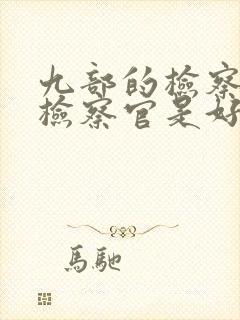 九部的檢察
檢察官是好
馬馳